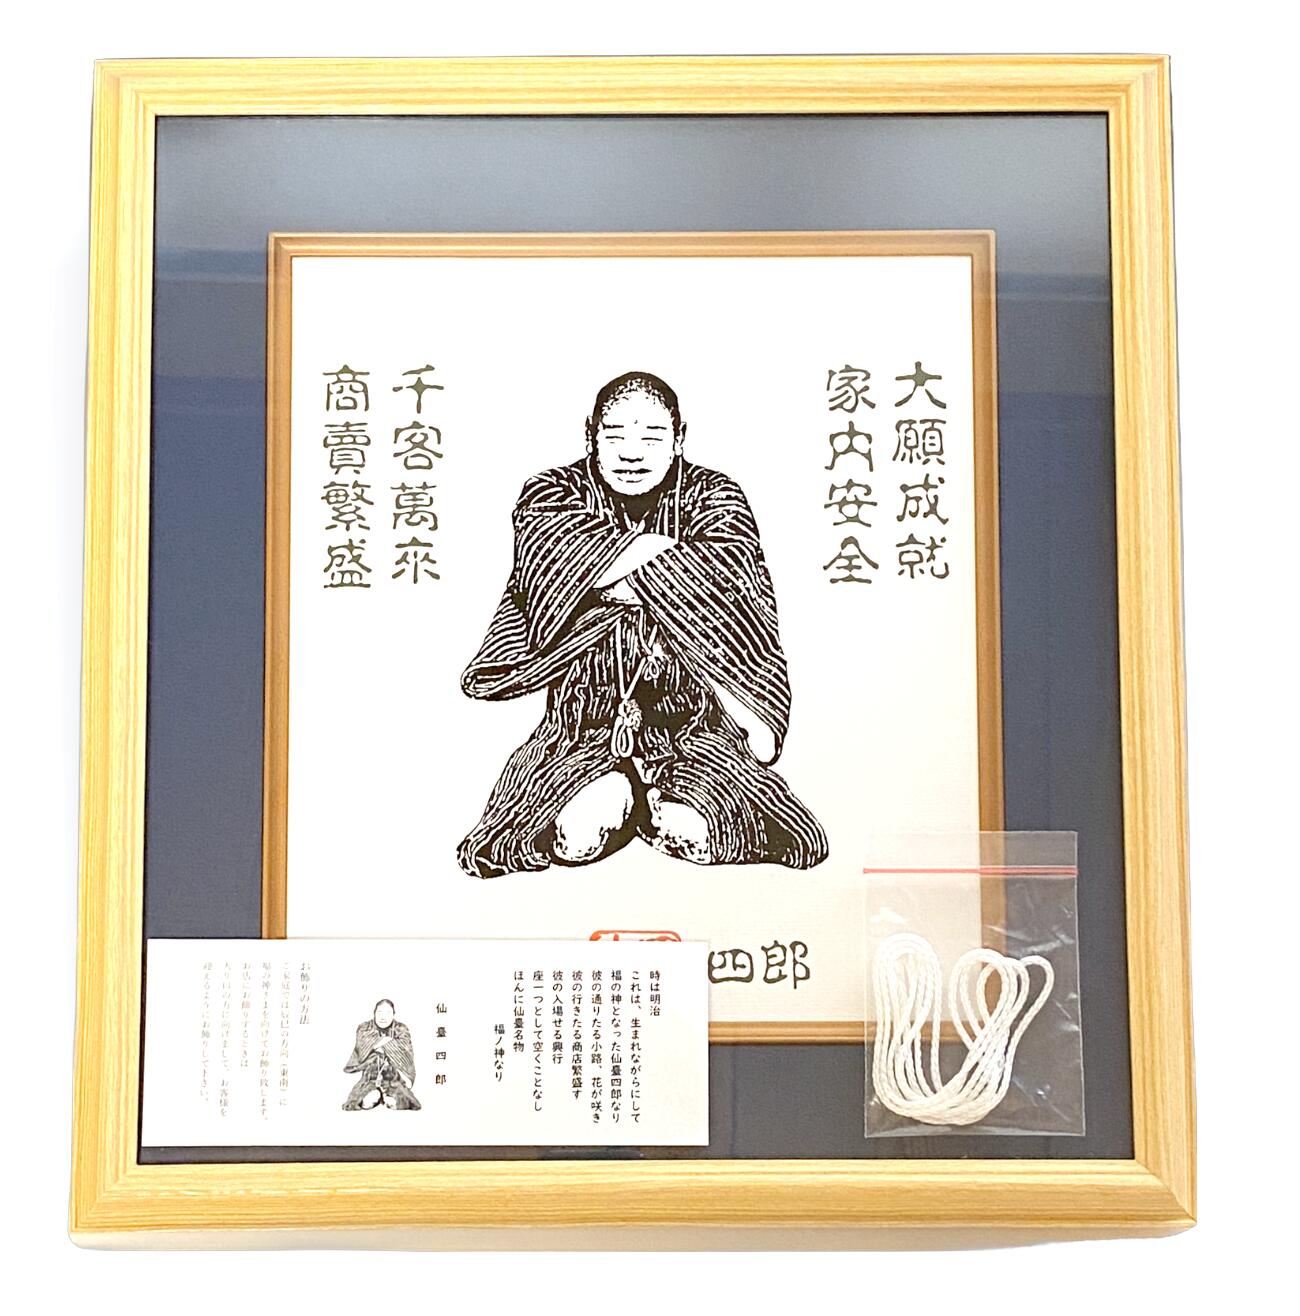 大願成就
家内安全
千客萬來
商賣繁盛
四郎
時は明治
これは、生まれながらにして
福の神となった仙臺四郎なり
彼の通りたる小路、花が咲き
彼の行きたる商店繁盛す
彼の入場せる興行
座一つとして空くことなし
ほんに仙臺名物
福ノ神なり
仙臺四郎
お飾りの方法
ご家庭では辰巳の方向(東南)に
福の神さまを向けてお飾り致します。
お店にお飾りするときは
入り口の方に向けまして、お客様を
迎えるようにお飾りして下さい。